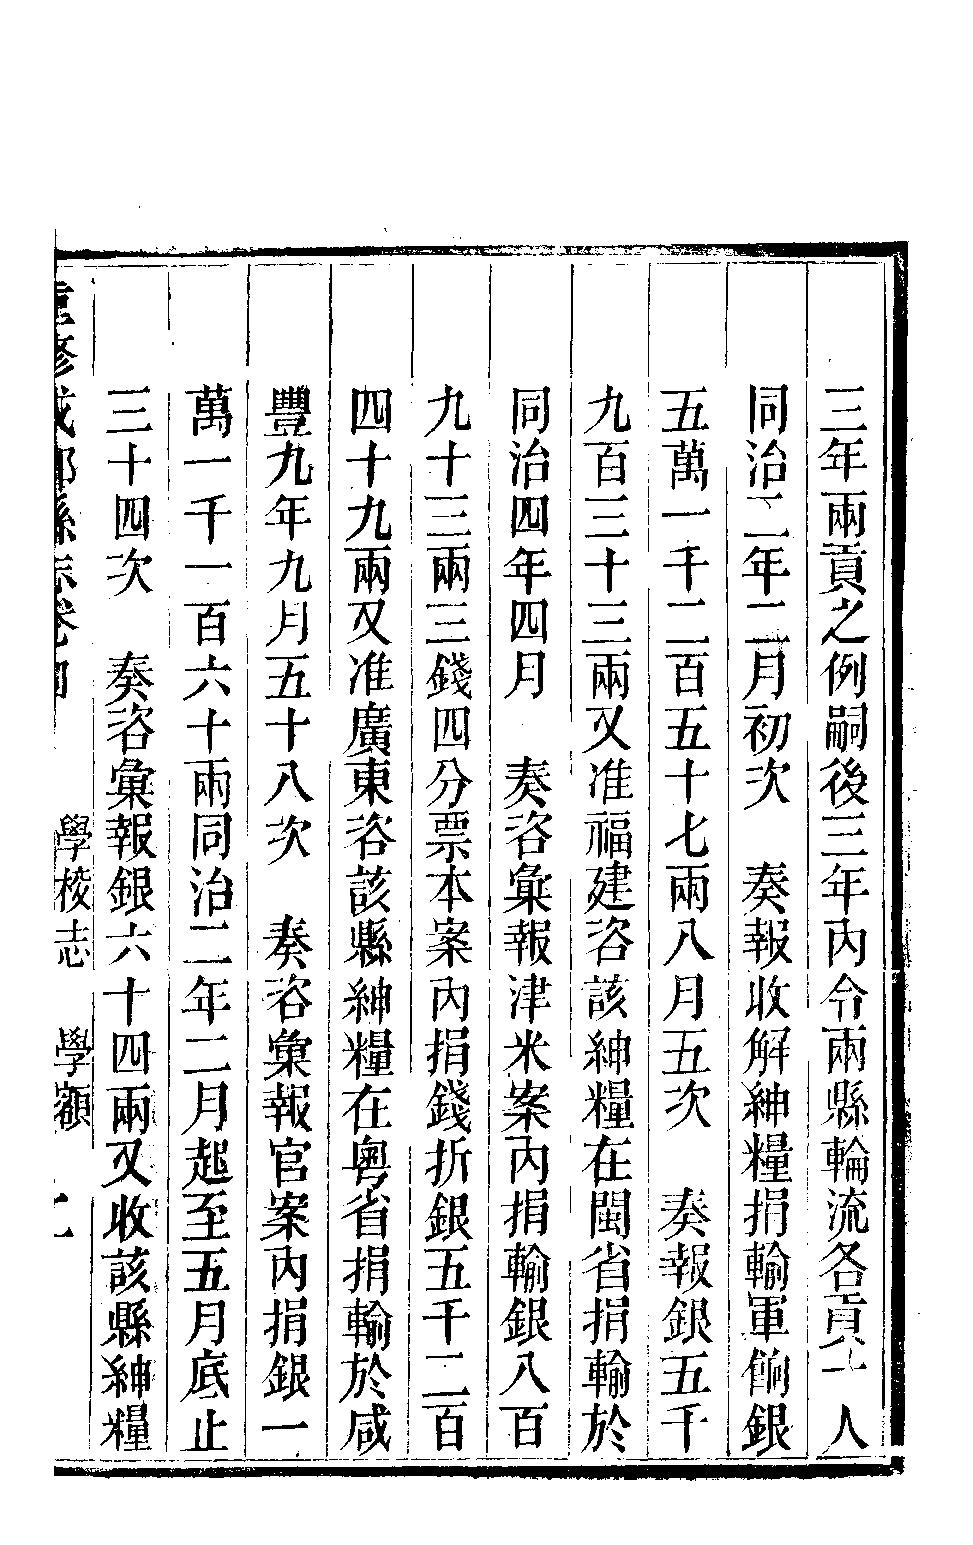 三年兩貢之例嗣後三年內令兩縣輪流各貢一人
同治二年二月初次　奏報收解紳糧捐輸軍餉銀
五萬一千二百五十七兩八月五次　奏報銀五千
九百三十三兩又准福建咨該紳糧在閩省捐輸於
同治四年四月　奏咨彙報津米案內捐輸銀八百
九十三兩三錢四分票本案內捐錢折銀五千二百
四十九兩又准廣東咨該縣紳糧在粵省捐輸於咸
豐九年九月五十八次　奏咨彙報官案內捐銀一
萬一千一百六十兩同治二年二月起至五月底止
三十四次　奏咨彙報銀六十四兩又收該縣紳糧
重修成都縣志卷四　學校志　學額　七